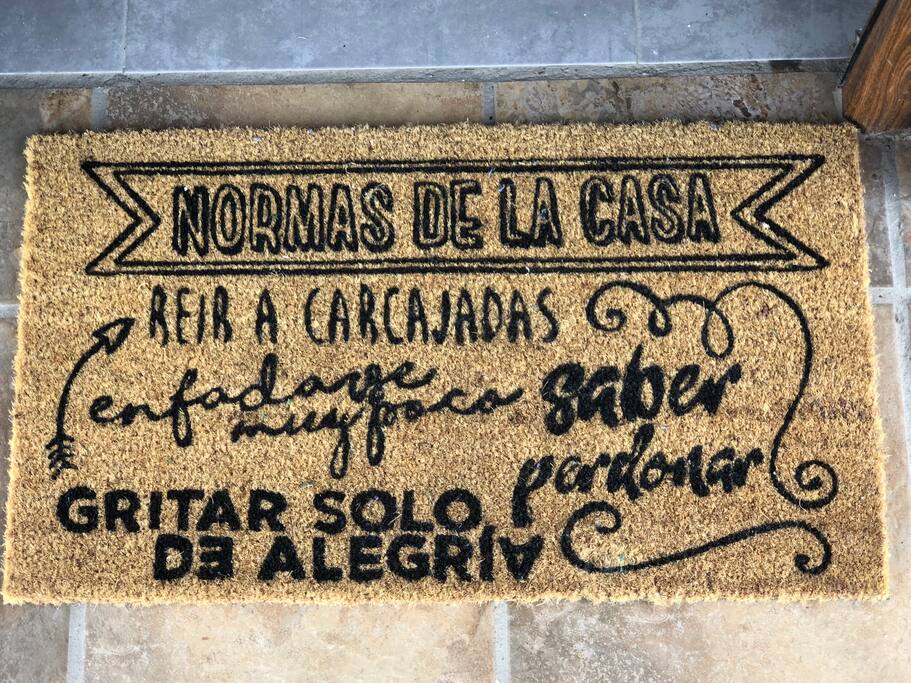 NORMAS DE LA CASA
REIR A CARCAJADAS
enfadarse
muy poco
saber
perdonar
GRITAR SOLO
DE ALEGRÍA